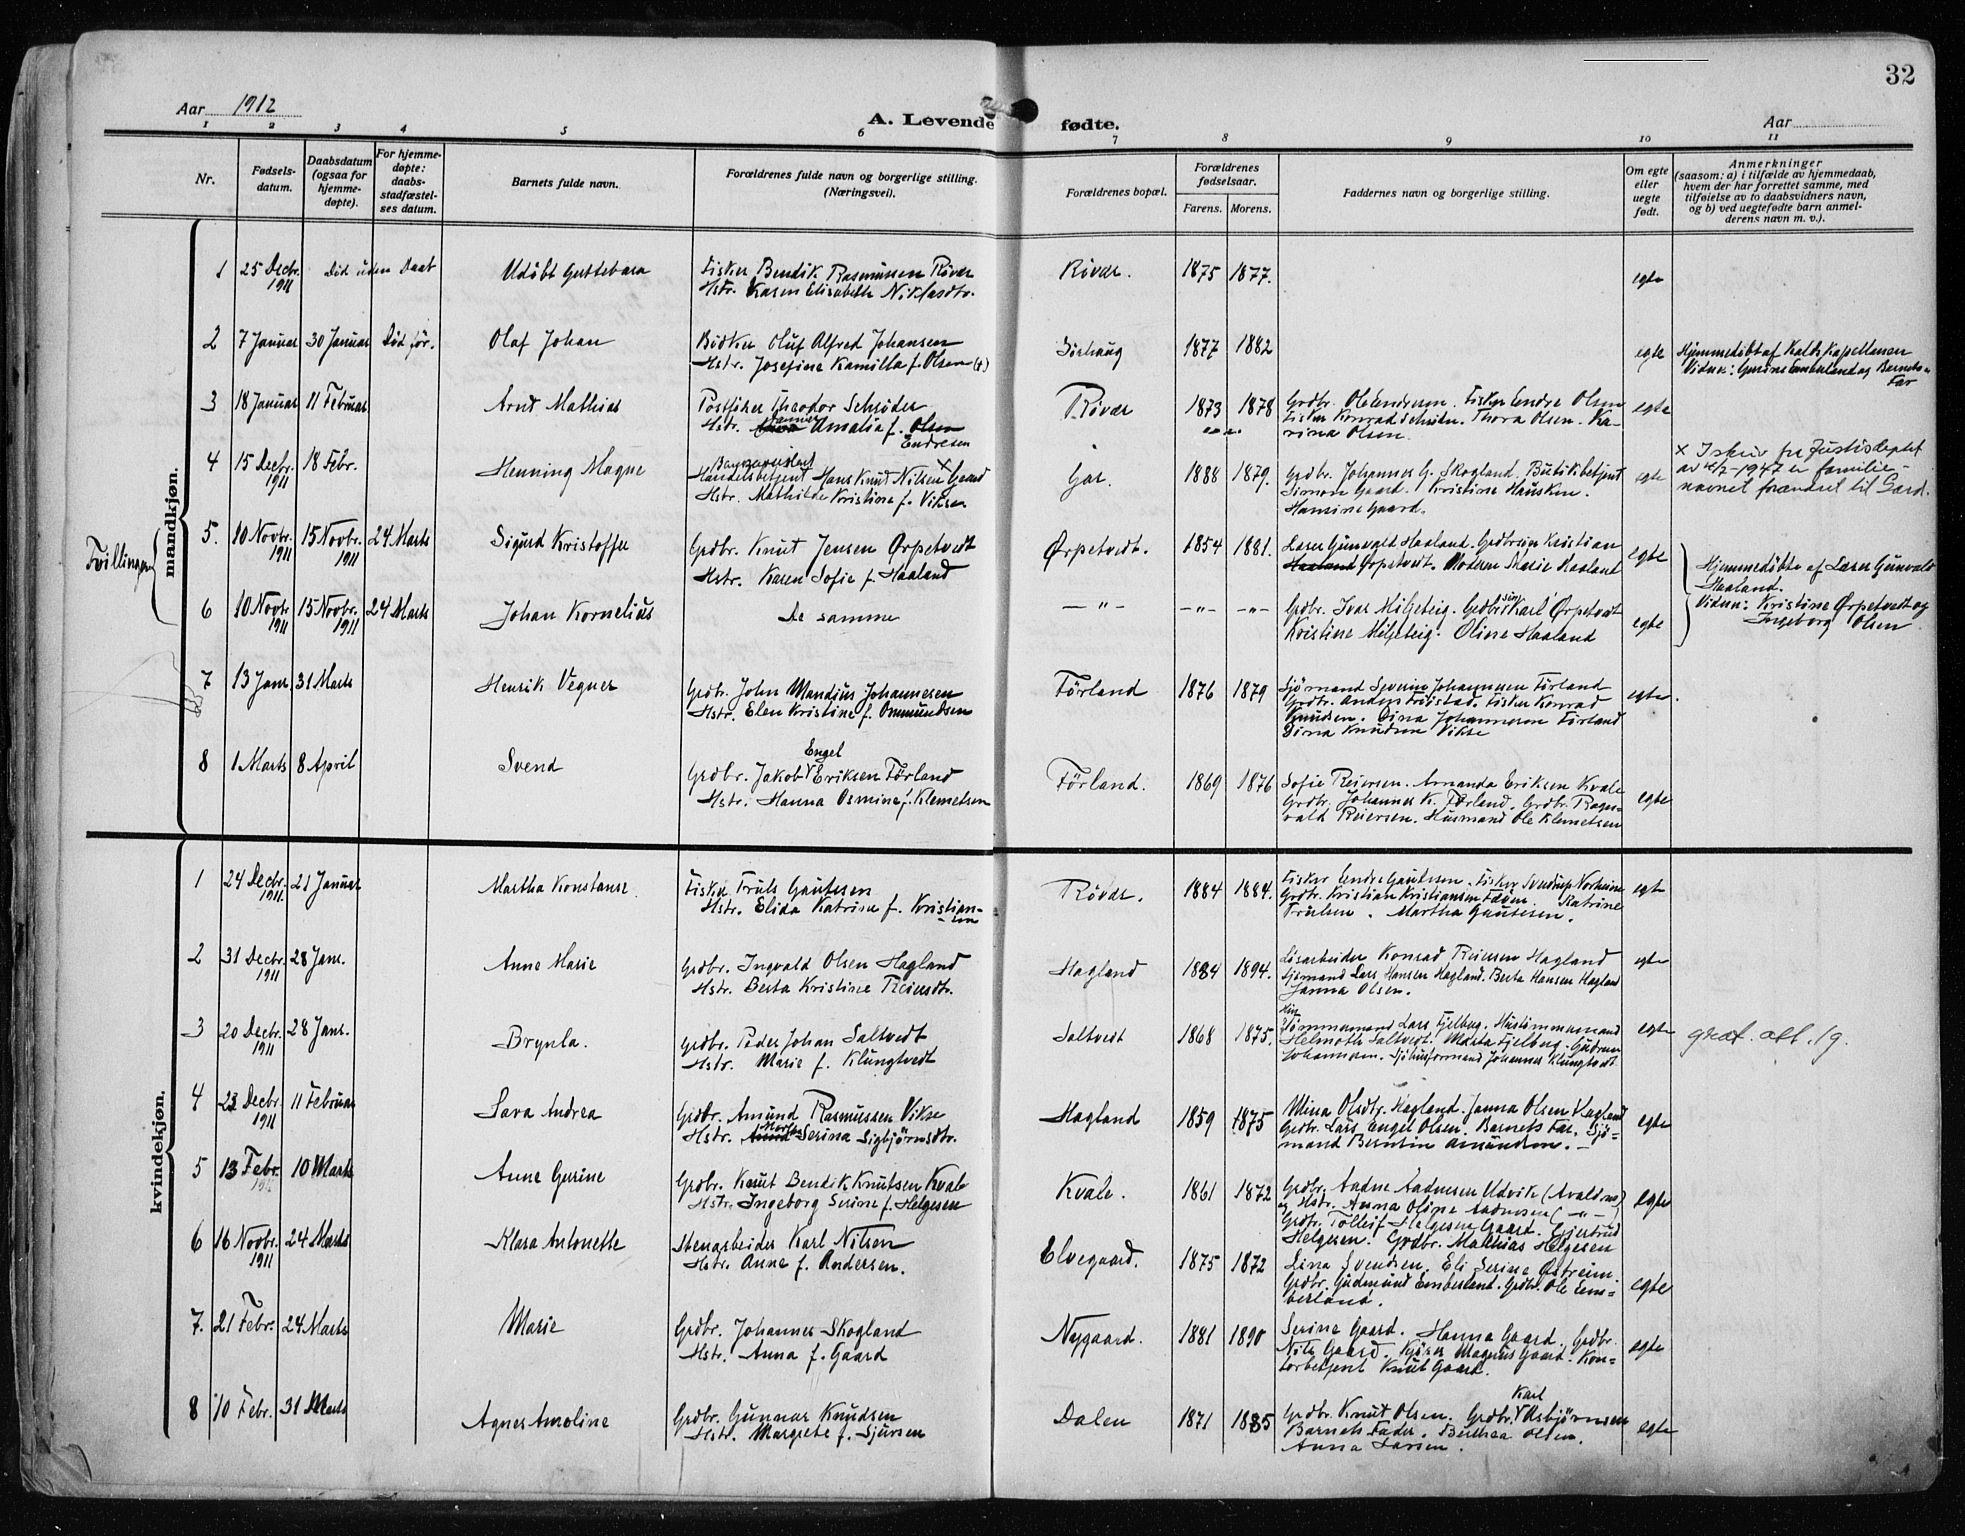 32
Aar 1912
A. Levende fødte.
Aar
1 2 3 4 5 6 7 8 9 10 11
Nr.
Fødsels-
datum.
Daabsdatum
(ogsaa for
hjemme-
døpte).
For hjemme-
døpte:
daabs-
stadfæstel-
ses datum.
Barnets fulde navn.
Forældrenes fulde navn og borgerlige stilling.
(Næringsvei).
Forældrenes bopæl.
Forældrenes
fødselsaar.
Farens. Morens.
Faddernes navn og borgerlige stilling.
Om egte
eller
uegte
født.
Anmerkninger
(saasom: a) i tilfælde av hjemmedaab,
hvem der har forrettet samme, med
tilføielse av to daabsvidners navn,
og b) ved uegtefødte barn anmel-
derens navn m. v.).
mandkjøn.
1 25 Decbr. 1911 Død uden Daab Udøbt Guttebarn
Fisker Bendik Rasmussen Røvær
Hstr. Karen Elisabeth Niklasdtr.
Røvær. 1875 1877. egte
2 7 Januar 30 Januar Død før. Olaf Johan
Bødker Oluf Alfred Johansen
Hstr. Josefine Kamilla f. Olsen (†)
Sørhaug 1877 1882 egte
Hjemmedøbt af Kath. Kapellanen
Vidne: Gurine Emberland og Barnets
Far
3 18 Januar 11 Februar Arnt Mathias
Postfører Theodor Schrøder
Hstr. Amalia f. Olsen
Endresen
Røvær 1873 1878
Grdbr. Ole Endresen. Fisker Endre Olsen
Fisker Konrad Schrøder. Thora Olsen. Ka-
rina Olsen.
egte
4 15 Decbr. 1911 18 Febr. Henning Magne
Handelsbetjent Hans Knut Nilsen × Gaard
Hstr. Mathilde Kristine f. Viksen
Gar. 1888 1879.
Grdbr. Johannes G. Skogland. Butikbetjent
Simon Gaard. Kristine Hausken.
Hansine Gaard.
egte
× I skriv fra Justisdeptet
av 1947 er familie-
navnet forandret til Gard.
Tvillinger
5. 10 Novbr. 1911 15 Novbr. 1911 24 Marts Sigurd Kristoffer
Grdbr. Knut Jensen Ørpetvedt
Hstr. Karen Sofie f. Haaland
Ørpetvedt. 1854 1881.
Lærer Gunvald Haaland. Grdbrsøn Kristian
Haaland Ørpetvedt. Moderen Marie Haaland
egte
6 10 Novbr. 1911 15 Novbr. 1911 24 Marts Johan Kornelius
De samme
—"— —"— —"—
Grdbr. Ivar Miljeteig. Grdbrsøn Karl Ørpetvedt
Kristine Miljeteig. Oline Haaland
egte
Hjemmedøbte af Lærer Gunvald
Haaland.
Vidner: Kristine Ørpetvedt og
Ingeborg Olsen
7 13 Janr. 31 Marts Henrik Vegner
Grdbr. John Mandius Johannesen
Hstr. Elen Kristine f. Ommundsen
Førland 1876 1879
Sjømand Severin Johannesen Førland
Grdbr. Anders Frøistad. Fisker Konrad
Knudsen. Dina Johannesen Førland
Dina Knudsen Vikse
egte.
8 1 Marts 8 April Svend
Engel
Grdbr. Jakob Eriksen Førland
Hstr. Hanna Osmine f. Klemetsen
Førland. 1869 1876
Sofie Reiersen. Amanda Eriksen Kvale
Grdbr. Johannes K. Førland. Grdbr. Ragn-
vald Reiersen. Husmand Ole Klemetsen
egte
kvindekjøn.
1 24 Decbr. 1911. 21 Januar Martha Konstanse
Fisker Truls Gautesen
Hstr. Elida Katrine f. Kristian-
sen
Røvær. 1884 1884.
Fisker Endre Gautesen. Fisker Sverdrup Norheim
Grdbr. Kristian Kristiansen Fæøen. Katrine
Trulsen. Martha Gautesen.
egte
2 31 Decbr. 1911 28 Janr. Anne Marie
Grdbr. Ingvald Olsen Hagland
Hstr. Berta Kristine Reiersdtr.
Hagland 1884 1894.
Løsarbeider Konrad Reiersen Hagland
Sjømand Lars Hansen Hagland. Berta Hansen Hagland
Janna Olsen.
egte
3 20 Decbr. 1911 28 Janr. Brynla.
Grdbr. Peder Johan Saltvedt
Hstr. Marie f. Klungtvedt
Saltvedt 1868 1875.
Tømmermand Lars Fjelberg. Hustømmermand
Helmoth Saltvedt. Marta Fjelberg. Gudrun
Johannesen. Johannes Klungtvedt
egte
grat. att. 19.
4 23 Decbr. 1911 11 Februar Sava Andrea
Grdbr. Amund Rasmussen Vikse
Hstr. Serina Sigbjørnsdtr.
Hagland 1859 1875
Mina Olsdtr. Hagland. Janna Olsen Hagland
Grdbr. Lars Engel Olsen. Barnets Far. Sjø-
mand Berntin Amundsen.
egte
5 13 Febr. 10 Marts Anne Gurine
Grdbr. Knut Bendik Knutsen Kvale
Hstr. Ingeborg Serine f. Helgesen
Kvale. 1861 1872
Grdbr. Aadne Aadnesen Udvik (Avaldsnes)
og Hstr. Anna Oline Aadnesen (—"—)
Grdbr. Tolleif Helgesen Gaard. Gjertrud
Helgesen. Grdbr. Mathias Helgesen
egte
6 16 Novbr. 1911 24 Marts Klara Antonette
Stenarbeider Karl Nilsen
Hstr. Anne f. Andersen.
Elvegaard. 1875 1872
Lina Svendsen. Eli Serine Østreim.
Grdbr. Gudmund Emberland. Grdbr. Ole Em-
berland.
egte
7. 21 Febr. 24 Marts Marie
Grdbr. Johannes Skogland
Hstr. Anna f. Gaard
Nygaard. 1881 1890
Serine Gaard. Hanna Gaard. Grdbr.
Nils Gaard. Magnus Gaard. Kon-
torbetjent Knut Gaard.
egte
8 10 Febr. 31 Marts Agnes Amoline
Grdbr. Gunnar Knudsen
Hstr. Margrete f. Sjursen
Dalen 1871 1885
Karl
Grdbr. Knut Olsen. Grdbr. Asbjørnsen
Barnets Fader. Berthea Olsen.
Anna Larsen.
egte